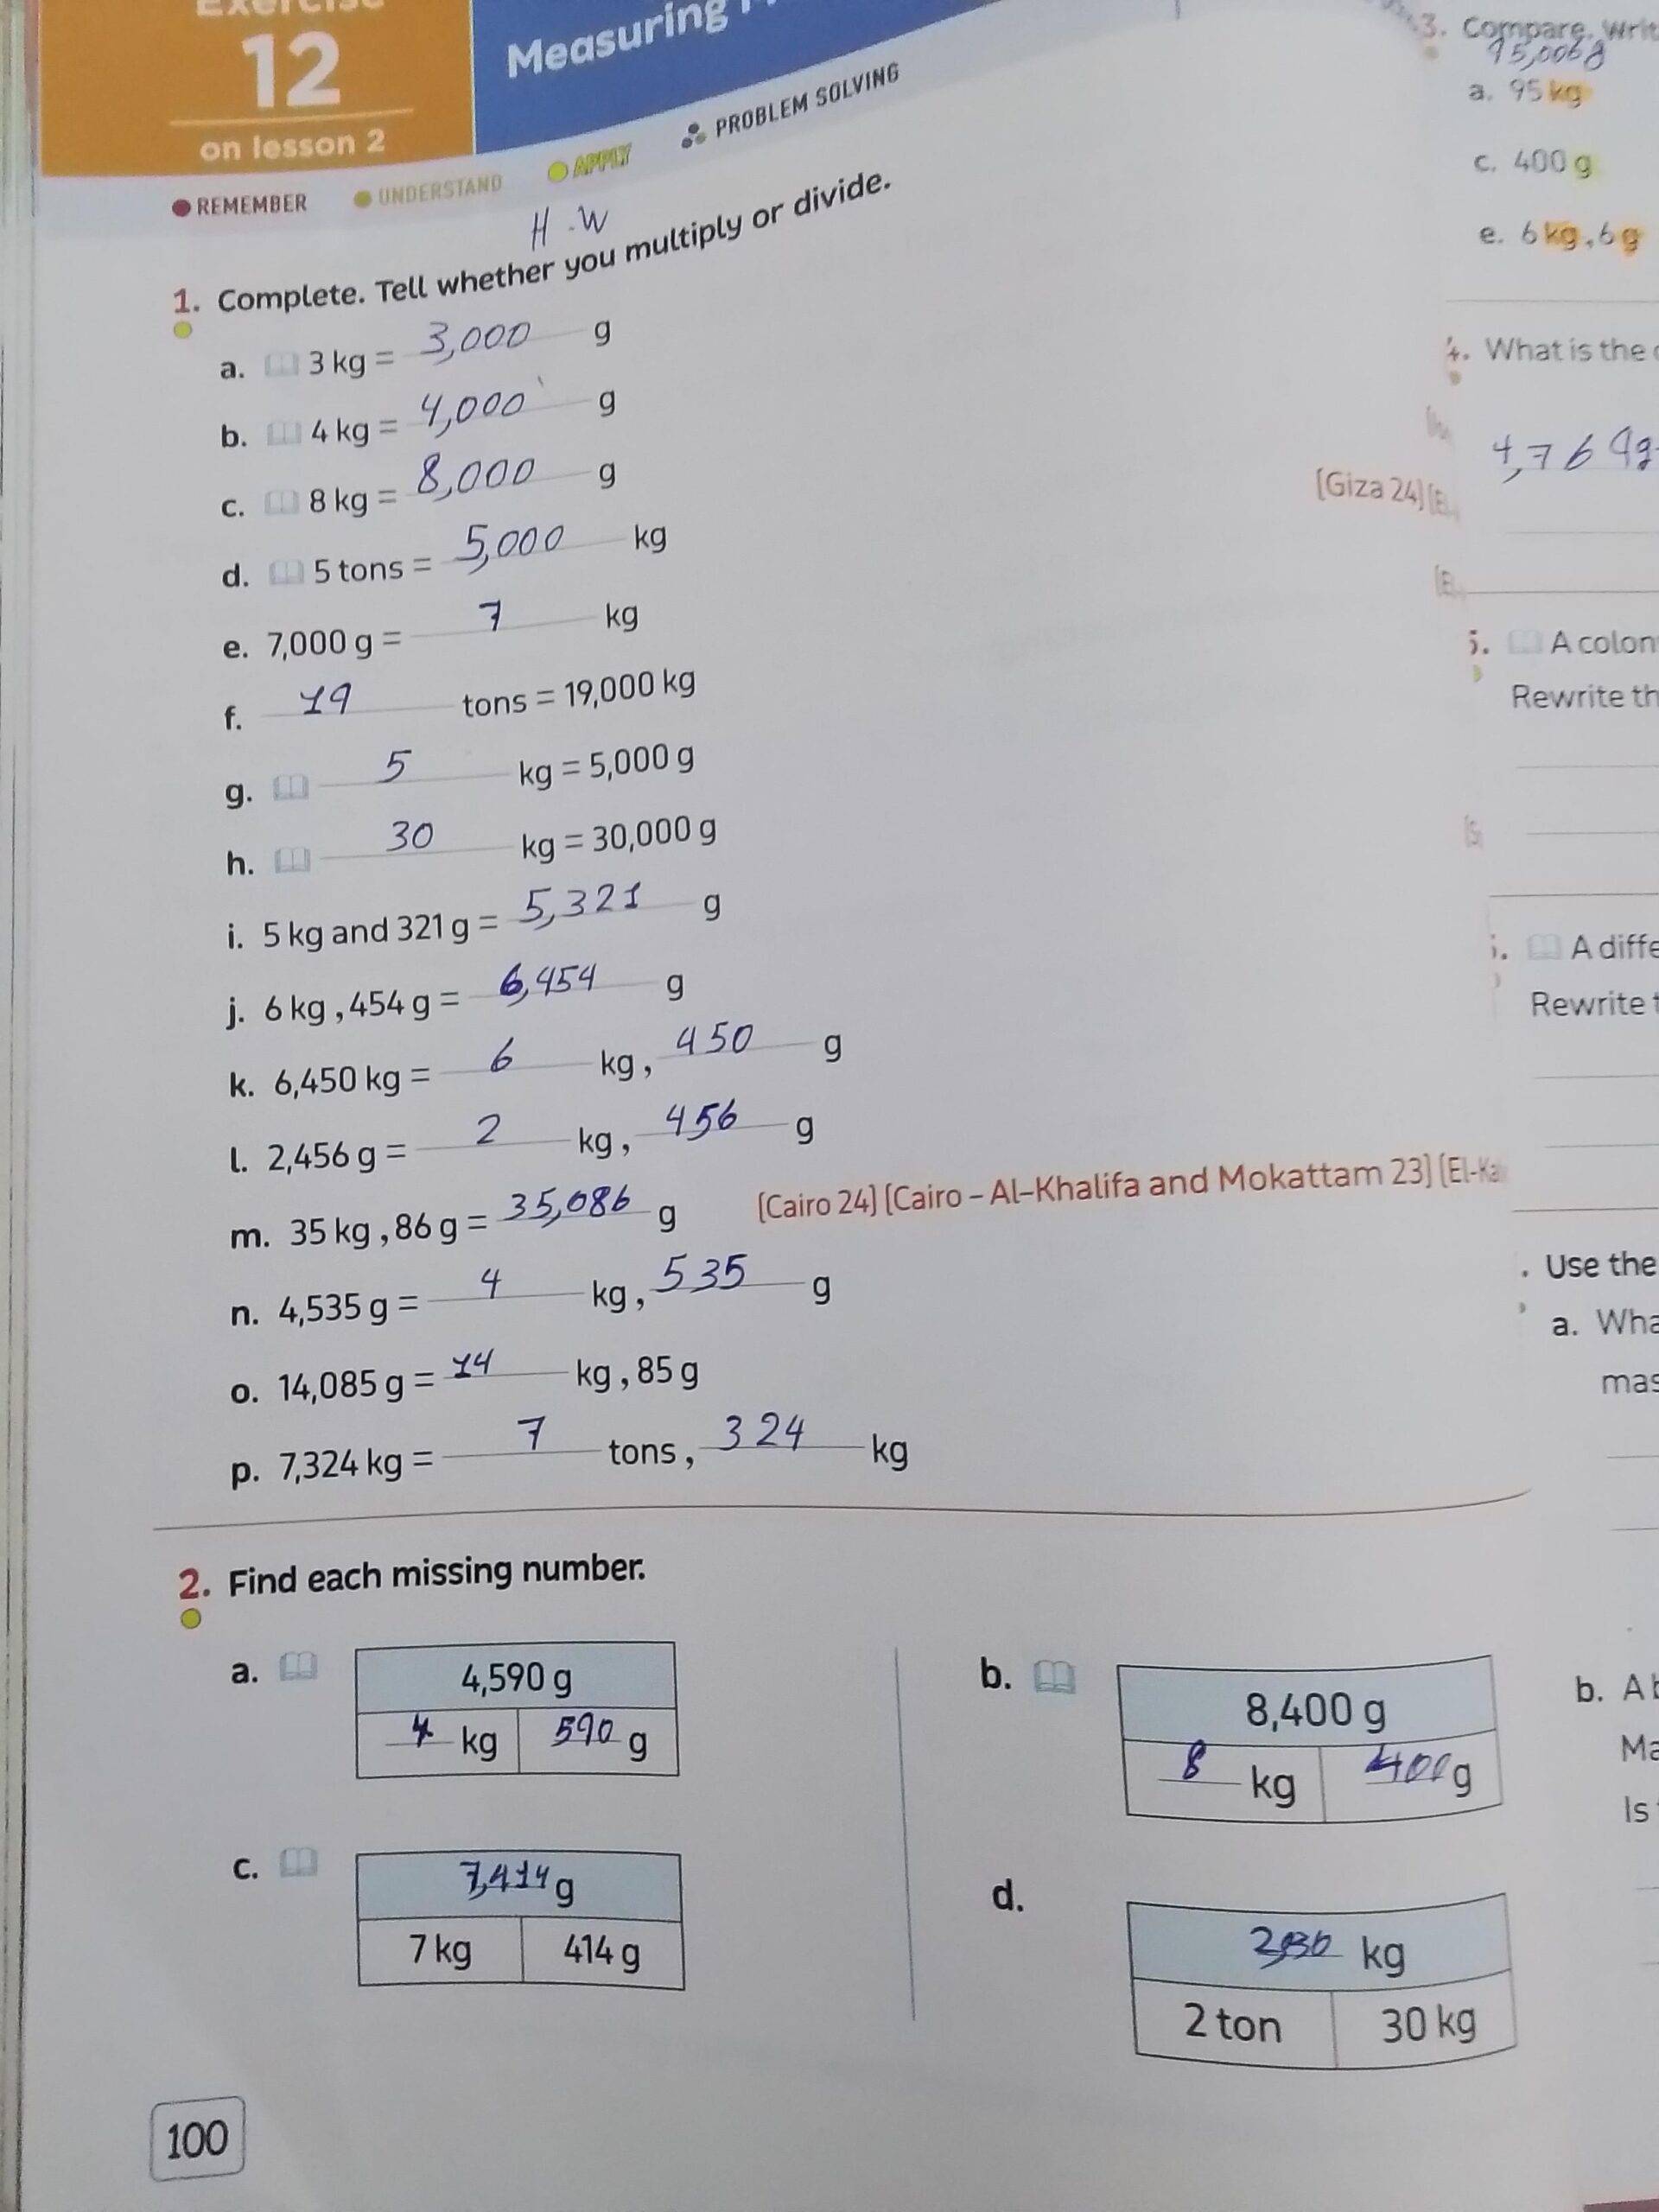 Exercise
12
on lesson 2
Measuring
REMEMBER UNDERSTAND APPLY PROBLEM SOLVING
H.W
1. Complete. Tell whether you multiply or divide.
a. 3 kg = 3,000 g
b. 4 kg = 4,000 g
c. 8 kg = 8,000 g
d. 5 tons = 5,000 kg
e. 7,000 g = 7 kg
f. 19 tons = 19,000 kg
g. 5 kg = 5,000 g
h. 30 kg = 30,000 g
i. 5 kg and 321 g = 5,321 g
j. 6 kg , 454 g = 6,454 g
k. 6,450 kg = 6 kg, 450 g
l. 2,456 g = 2 kg, 456 g
m. 35 kg , 86 g = 35,086 g (Cairo 24) (Cairo – Al-Khalifa and Mokattam 23) (El-
n. 4,535 g = 4 kg, 535 g
o. 14,085 g = 14 kg , 85 g
p. 7,324 kg = 7 tons, 324 kg
(Giza 24)
2. Find each missing number.
a. 4,590 g
4 kg 590 g
b. 8,400 g
8 kg 400 g
c. 7,414 g
7 kg 414 g
d. kg
2 ton 30 kg
100
3. Compare. Writ
a. 95 kg
c. 400 g
e. 6 kg , 6 g
4. What is the
4,769g
5. A colon
Rewrite th
A diffe
Rewrite t
Use the
a. Wha
mas
b. A b
Ma
Is